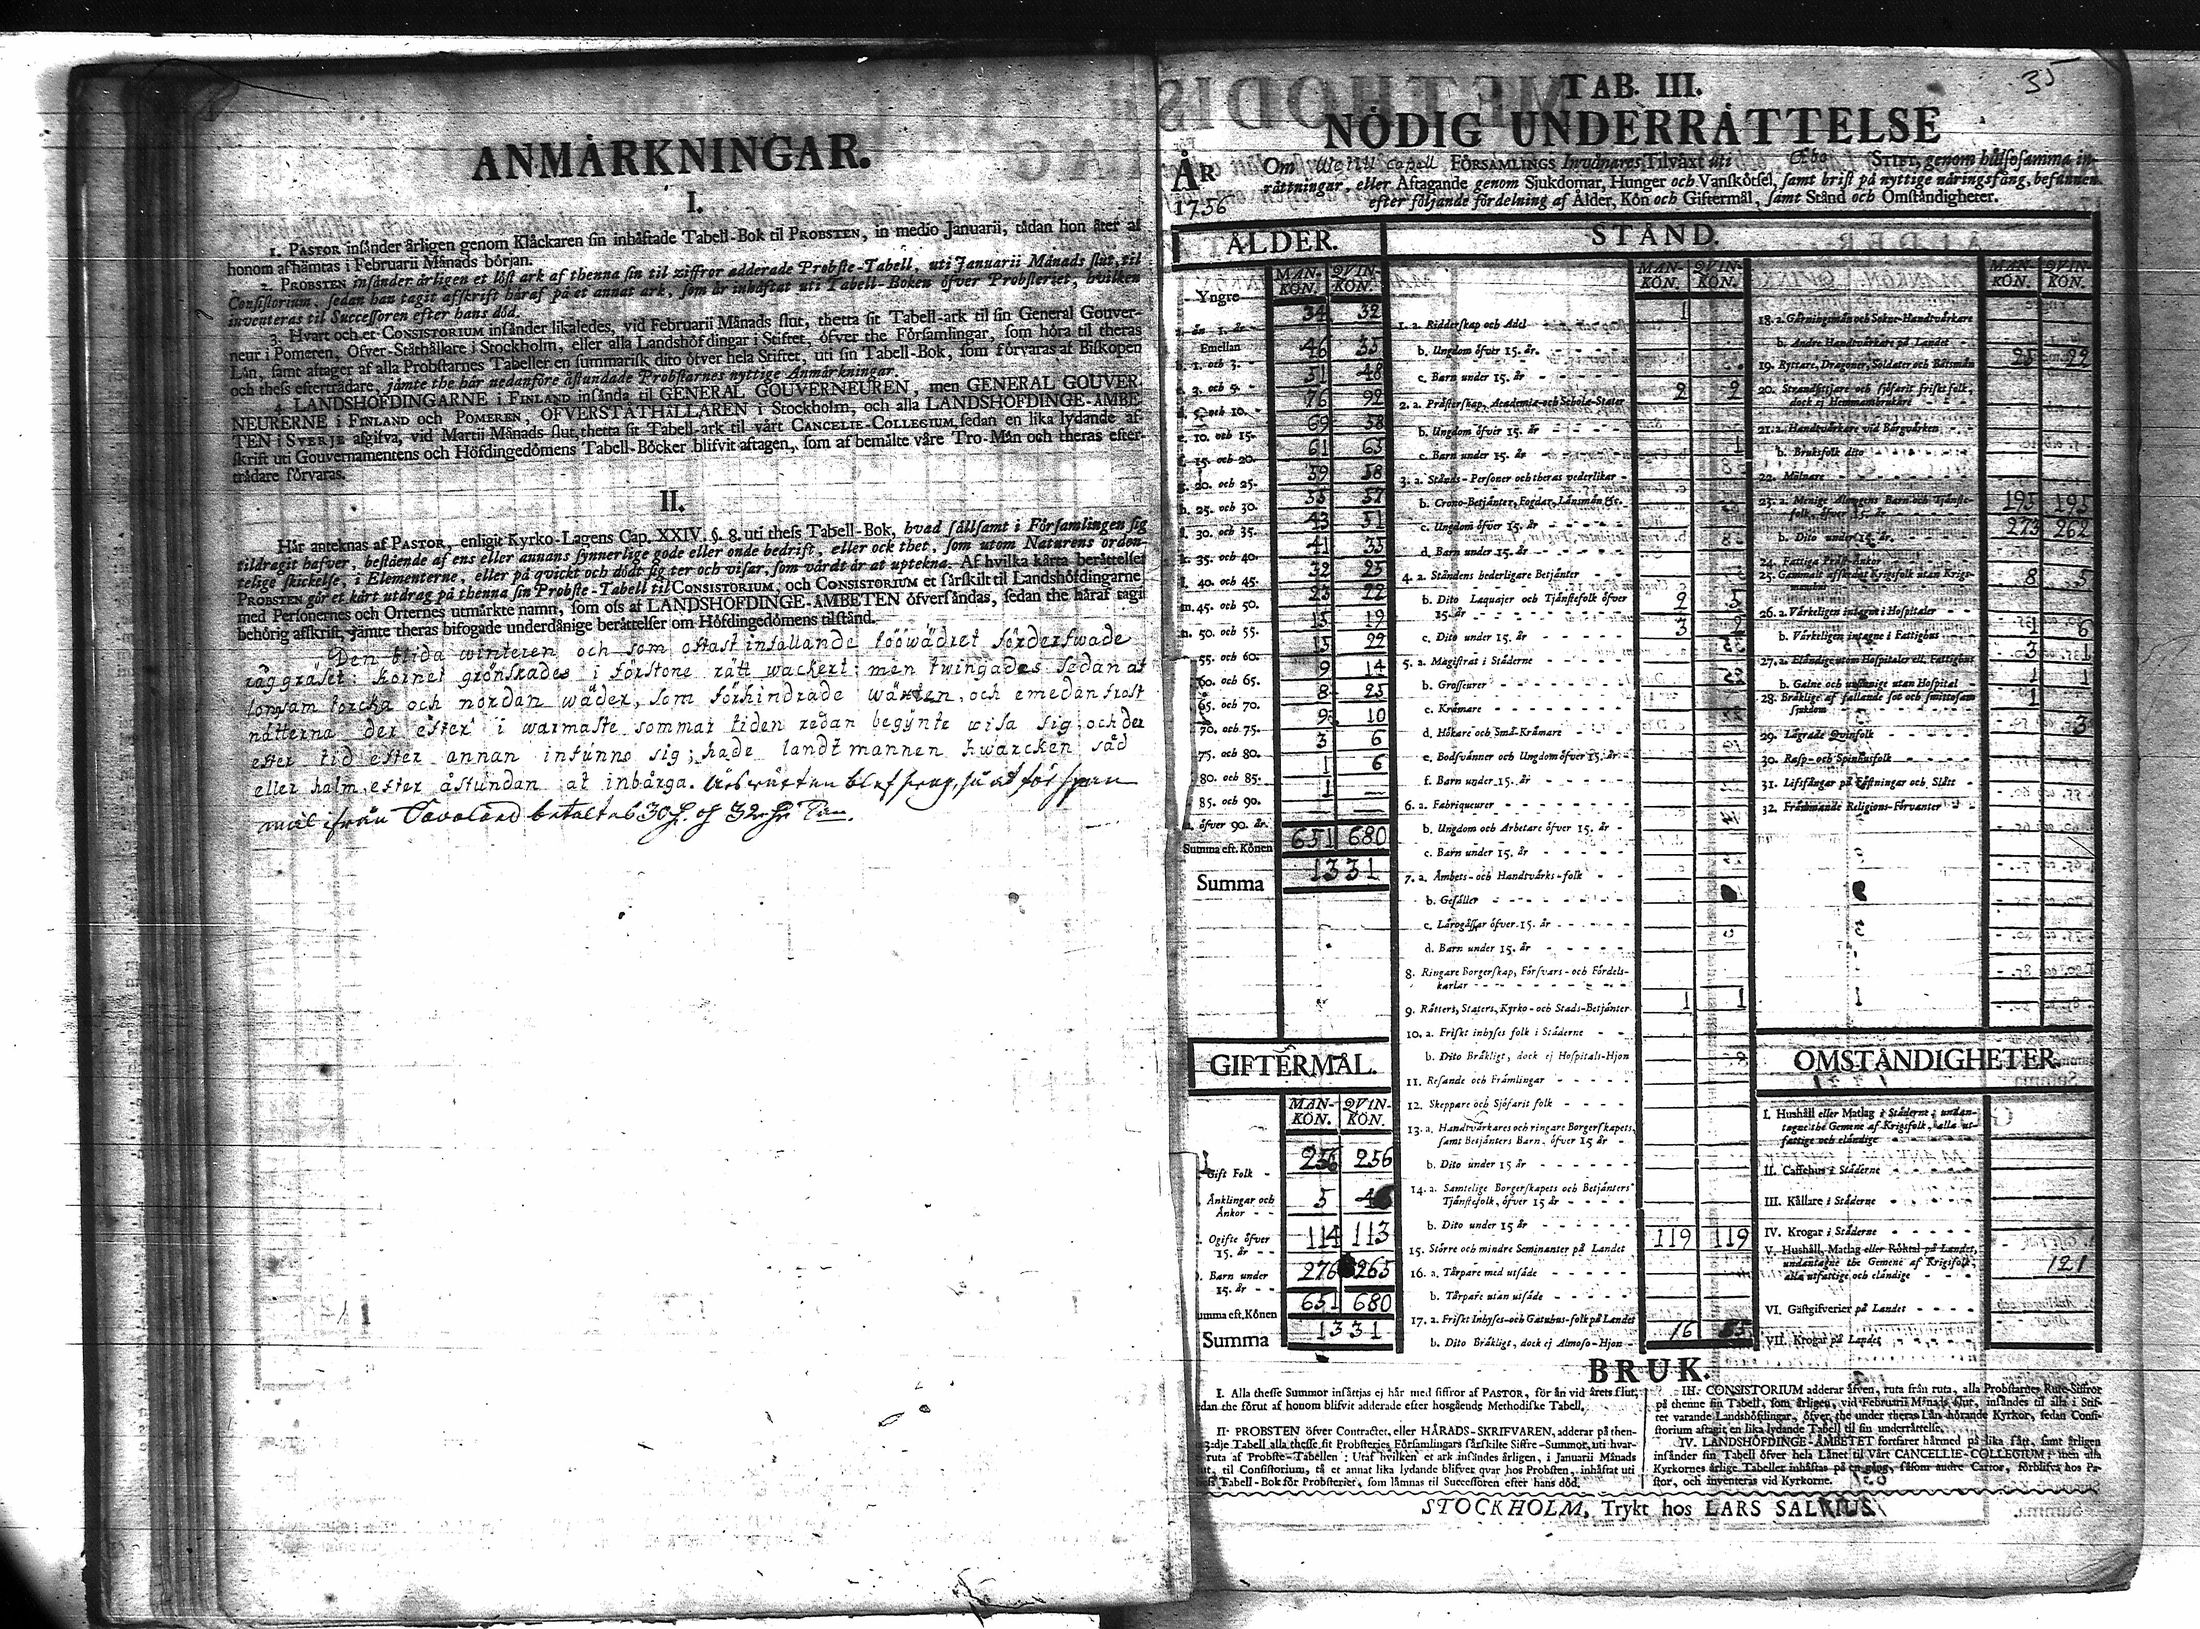 ANMÄRKNINGAR.
I.
1. PASTOR insänder årligen genom Klåckaren sin inhäftade Tabell-Bok til PROBSTEN, in medio Januarii, tådan hon åter af
honom afhämtas i Februarii Månads början.
2. PROBSTEN insänder årligen et löst ark af thenna sin til ziffror adderade Probste-Tabell, uti Januarii Månads slut, til
Consistorium, sedan han tagit afskrift häraf på et annat ark, som är inhäftat uti Tabell-Boken öfver Probsteriet, hvilken
inventeras til Successoren efter hans död.
3. Hvart och et CONSISTORIUM insänder likaledes, vid Februarii Månads slut, thetta sit Tabell-ark til sin General Gouver-
neur i Pomeren, Öfver-Ståthållare i Stockholm, eller alla Landshöfdingar i Stiftet, öfver the Församlingar, som höra til theras
Län, samt aftager af alla Probstarnes Tabeller en summarisk dito öfver hela Stiftet, uti sin Tabell-Bok, som förvaras af Biskopen
och thess efterträdare, jämte the här nedanföre åstundade Probstarnes nyttige Anmärkningar.
4. LANDSHÖFDINGARNE i FINLAND insända til GENERAL GOUVERNEUREN, men GENERAL GOUVER-
NEURERNE i FINLAND och POMEREN, ÖFVERSTÅTHÅLLAREN i Stockholm, och alla LANDSHÖFDINGE-ÄMBE-
TEN i SVERJE afgifva, vid Martii Månads slut, thetta sit Tabell-ark til vårt CANCELIE-COLLEGIUM, sedan en lika lydande af-
skrift uti Gouvernamentens och Höfdingedömens Tabell-Böcker blifvit aftagen, som af bemälte våre Tro-Män och theras efter-
trädare förvaras.
II.
Här anteknas af PASTOR, enligit Kyrko-Lagens Cap. XXIV. §. 8. uti thess Tabell-Bok, hvad sällsamt i Församlingen sig
tildragit hafver, bestående af ens eller annans synnerlige gode eller onde bedrift, eller ock thet, som utom Naturens orden-
telige skickelse, i Elementerne, eller på qvickt och dödt sig ter och visar, som värdt är at uptekna. Af hvilka kårta berättelser
PROBSTEN gör et kårt utdrag på thenna sin Probste-Tabell til CONSISTORIUM, och CONSISTORIUM et särskilt til Landshöfdingarne,
med Personernes och Orternes utmärkte namn, som oss af LANDSHÖFDINGE-ÄMBETEN öfversändas, sedan the häraf tagit
behörig affskrift, jämte theras bifogade underdånige berättelser om Höfdingedömens tilstånd.
Den blida winteren och som oftast infallande tööwädret förderfwade
råggräset: kornet grönskades i förstone rätt wackert: men twingades sedan af
longsam torcka och nordan wäder, som förhindrade wäxten, och emedan frost
nätterna der efter i warmaste sommar tiden redan begynte wisa sig, och der
efter tid efter annan infunno sig; hade landtmannen hwarcken säd
eller halm efter åstundan at inbärga.
35
TAB. III.
NÖDIG UNDERRÄTTELSE
ÅR 1756
Om capell FÖRSAMLINGS Invånares Tilväxt uti Åbo STIFT, genom hälsosamma in-
rättningar, eller Aftagande genom Sjukdomar, Hunger och Vanskötsel, samt brist på nyttige näringsfång, befunnen
efter följande fördelning af Ålder, Kön och Giftermål, samt Stånd och Omständigheter.
ÅLDER.
MAN-KÖN. QVIN-KÖN.
Yngre
än 1. år 34 32
Emellan
b. 1. och 3. 46 35
c. 3. och 5. 51 48
d. 5. och 10. 76 92
e. 10. och 15. 69 58
f. 15. och 20. 61 63
g. 20. och 25. 39 58
h. 25. och 30. 35 57
i. 30. och 35. 43 51
k. 35. och 40. 41 35
l. 40. och 45. 32 25
m. 45. och 50. 23 22
n. 50. och 55. 15 19
55. och 60. 15 22
60. och 65. 9 14
65. och 70. 8 25
70. och 75. 9 10
75. och 80. 3 6
80. och 85. 1 6
85. och 90. 1 —
öfver 90. år.
Summa eft. Könen 651 680
Summa 1331
GIFTERMÅL.
MAN-KÖN. QVIN-KÖN.
Gift Folk 256 256
Änklingar och Änkor 5 46
Ogifte öfver 15. år 114 113
Barn under 15. år 276 265
Summa eft. Könen 651 680
Summa 1331
STÅND.
MAN-KÖN. QVIN-KÖN.
1. a. Ridderskap och Adel 1
b. Ungdom öfver 15. år.
c. Barn under 15. år
2. a. Prästerskap, Academiæ och Scholæ-Stater 2 2
b. Ungdom öfver 15. år
c. Barn under 15. år 1
3. a. Stånds-Personer och theras vederlikar
b. Crono-Betjänter, Fogdar, Länsmän &c.
c. Ungdom öfver 15. år
d. Barn under 15. år
4. a. Ståndens hederligare Betjänter
b. Dito Laquajer och Tjänstefolk öfver 15. år 2 5
c. Dito under 15. år 3 2
5. a. Magistrat i Städerne
b. Grosseurer
c. Krämare
d. Hökare och Små-Krämare
e. Bodsvänner och Ungdom öfver 15. år
f. Barn under 15. år
6. a. Fabriqueurer
b. Ungdom och Arbetare öfver 15. år
c. Barn under 15. år
7. a. Ämbets- och Handtvärks-folk
b. Gesäller
c. Lärogåssar öfver 15. år
d. Barn under 15. år
8. Ringare Borgerskap, Försvars- och Fördels-karlar
9. Rätters, Staters, Kyrko- och Stads-Betjänter 1 1
10. a. Friskt inhyses folk i Städerne
b. Dito Bräkligt, dock ej Hospitals-Hjon
11. Resande och Främlingar
12. Skeppare och Sjöfarit folk
13. a. Handtvärkares och ringare Borgerskapets, samt Betjänters Barn, öfver 15 år
b. Dito under 15 år
14. a. Samtelige Borgerskapets och Betjänters Tjänstefolk, öfver 15 år
b. Dito under 15 år
15. Större och mindre Seminanter på Landet 119 119
16. a. Tårpare med utsäde
b. Tårpare utan utsäde
17. a. Friskt Inhyses- och Gatuhus-folk på Landet
b. Dito Bräkligt, dock ej Almoso-Hjon 16 55
MAN-KÖN. QVIN-KÖN.
18. a. Gärningsmän och Sokne-Handtvärkare
b. Andre Handtvärkare på Landet
19. Ryttare, Dragoner, Soldater och Båtsmän 25 22
20. Strandsittjare och sjöfarit friskt folk, dock ej Hemmansbrukare
21. a. Handtvärkare vid Bärgvärken
b. Bruksfolk dito
22. Mölnare
23. a. Menige Almogens Barn och Tjänstefolk, öfver 15. år 195 195
b. Dito under 15. år. 273 262
24. Fattiga Präst-Änkor
25. Gammalt afskedat Krigsfolk utan Krigs- 8 5
26. a. Värkeligen intagne i Hospitaler
b. Värkeligen intagne i Fattighus 1 6
27. a. Eländige utom Hospitaler ell. Fattighus 3 1
b. Galne och usinnige utan Hospital 1 1
28. Bräklige af fallande sot och smittosam sjukdom 1
29. Lägrade Qvinfolk 3
30. Rasp- och Spinhusfolk
31. Lifsfångar på Fästningar och Slått
32. Främmande Religions-Förvanter
OMSTÄNDIGHETER.
I. Hushåll eller Matlag i Städerne, undan-
tagne the Gemene af Krigsfolk, alla ut-
fattige och eländige
II. Caffehus i Städerne
III. Källare i Städerne
IV. Krogar i Städerne
V. Hushåll, Matlag eller Röktal på Landet,
undantagne the Gemene af Krigsfolk,
alla utfattige och eländige 121
VI. Gästgifverier på Landet
VII. Krogar på Landet
BRUK.
I. Alla thesse Summor insättjas ej här med siffror af PASTOR, för än vid årets slut,
sedan the förut af honom blifvit adderade efter hosgående Methodiske Tabell.
II. PROBSTEN öfver Contractet, eller HÄRADS-SKRIFVAREN, adderar på then-
3:dje Tabell alla thesse sit Probsteries Församlingars särskilte Siffre-Summor, uti hvar-
ruta af Probste-Tabellen: Utaf hvilken et ark insändes årligen, i Januarii Månads
slut, til Consistorium, tå et annat lika lydande blifver qvar hos Probsten, inhäftat uti
thess Tabell-Bok för Probsteriet, som lämnas til Successoren efter hans död.
III. CONSISTORIUM adderar äfven, ruta från ruta, alla Probstarnes Rute-Siffror
på thenne sin Tabell, som årligen, vid Februarii Månads slut, insändes til alla i Stif-
tet varande Landshöfdingar, öfver the under theras Län hörande Kyrkor, sedan Consi-
storium aftagit en lika lydande Tabell til sin underrättelse.
IV. LANDSHÖFDINGE-ÄMBETET fortfarer härmed på lika sätt, samt årligen
insänder sin Tabell öfver hela Länet til Vårt CANCELLIE-COLLEGIUM; men alla
Kyrkornes årlige Tabeller inhäftas på en gång, såsom andre Cartor, förblifva hos Pa-
stor, och inventeras vid Kyrkorne.
STOCKHOLM, Trykt hos LARS SALVIUS.